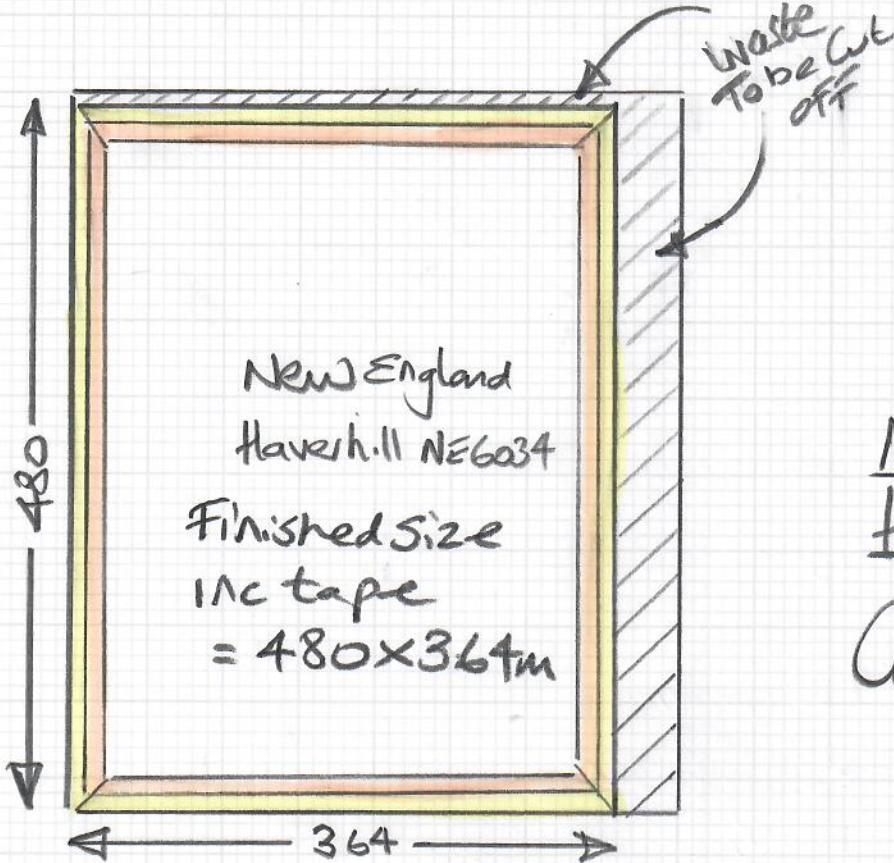 Waste
To be Cut
off
480
New England
Haverhill NE6034
Finished size
inc tape
= 480x364m
364